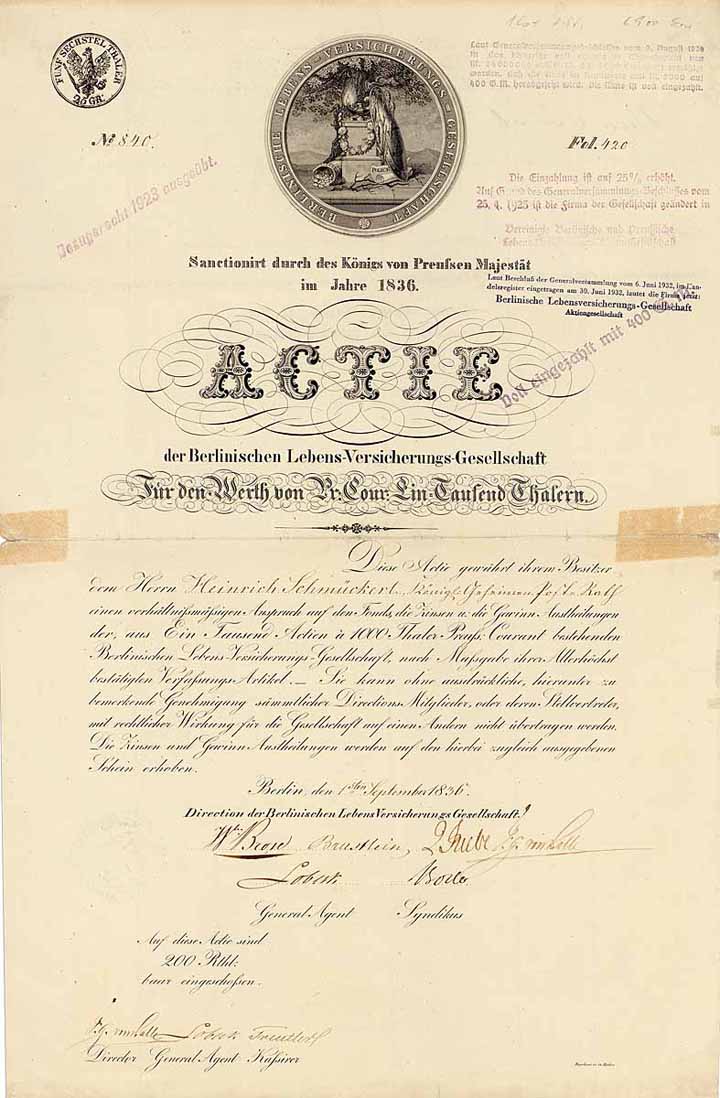 FÜNF SECHSTEL THALER
25 GR.
BERLINISCHE LEBENS-VERSICHERUNGS-GESELLSCHAFT
POLICE
No 840.
Fol. 420
Laut Generalversammlungsbeschlusses vom
400 G.M. herabgesetzt wird. Die Aktie ist voll eingezahlt.
Bezugsrecht 1923 ausgeübt.
Die Einzahlung ist auf 25% erhöht.
Auf Grund des Generalversammlungs-Beschlusses vom
25. 4. 1923 ist die Firma der Gesellschaft geändert in
Vereinigte Berlinische und Preußische
Lebens-
Sanctionirt durch des Königs von Preußsen Majestät
im Jahre 1836.
Laut Beschluß der Generalversammlung vom 6. Juni 1932, im Han-
delsregister eingetragen am 30. Juni 1932, lautet die Firma jetzt:
Berlinische Lebensversicherungs-Gesellschaft
Aktiengesellschaft
Voll eingezahlt mit 400 G.M.
ACTIE
der Berlinischen Lebens-Versicherungs-Gesellschaft
Für den Werth von Pr. Cour. Ein Tausend Thalern.
Diese Actie gewährt ihrem Besitzer
dem Herrn Heinrich Schmückert, Königl. Geheimen Post-Rath
einen verhältnißmäßigen Anspruch auf den Fonds, die Zinsen u. die Gewinn Austheilungen
der, aus Ein Tausend Actien à 1000 Thaler Preuß. Courant bestehenden
Berlinischen Lebens Versicherungs-Gesellschaft, nach Maßgabe ihrer Allerhöchst
bestätigten Verfassungs Artikel. — Sie kann ohne ausdrückliche, hierunter zu
bemerkende Genehmigung sämmtlicher Directions Mitglieder, oder deren Stellvertreter,
mit rechtlicher Wirkung für die Gesellschaft auf einen Andern nicht übertragen werden.
Die Zinsen und Gewinn Austheilungen werden auf den hierbei zugleich ausgegebenen
Schein erhoben.
Berlin, den 1sten September 1836.
Direction der Berlinischen Lebens Versicherungs Gesellschaft.
Brustlein,
Lobeck
General Agent Syndikus
Auf diese Actie sind
200 Rthl.
baar eingeschoßen.
Lobeck
Director General Agent Kaßirer